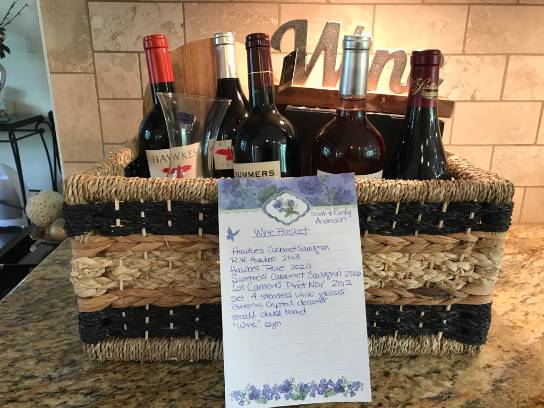 Wine
HAWKES
SUMMERS
Scott & Candy
Anderson
Wine Basket
Hawkes Cabernet Sauvignon
R.W. Hawker 2013
Hawkes Rose 2020
Summers Cabernet Sauvignon 2016
Los Carneros Pinot Noir 2012
set 4 stemless wine glasses
Bohemia Crystal decanter
small cheese board
"Wine" sign